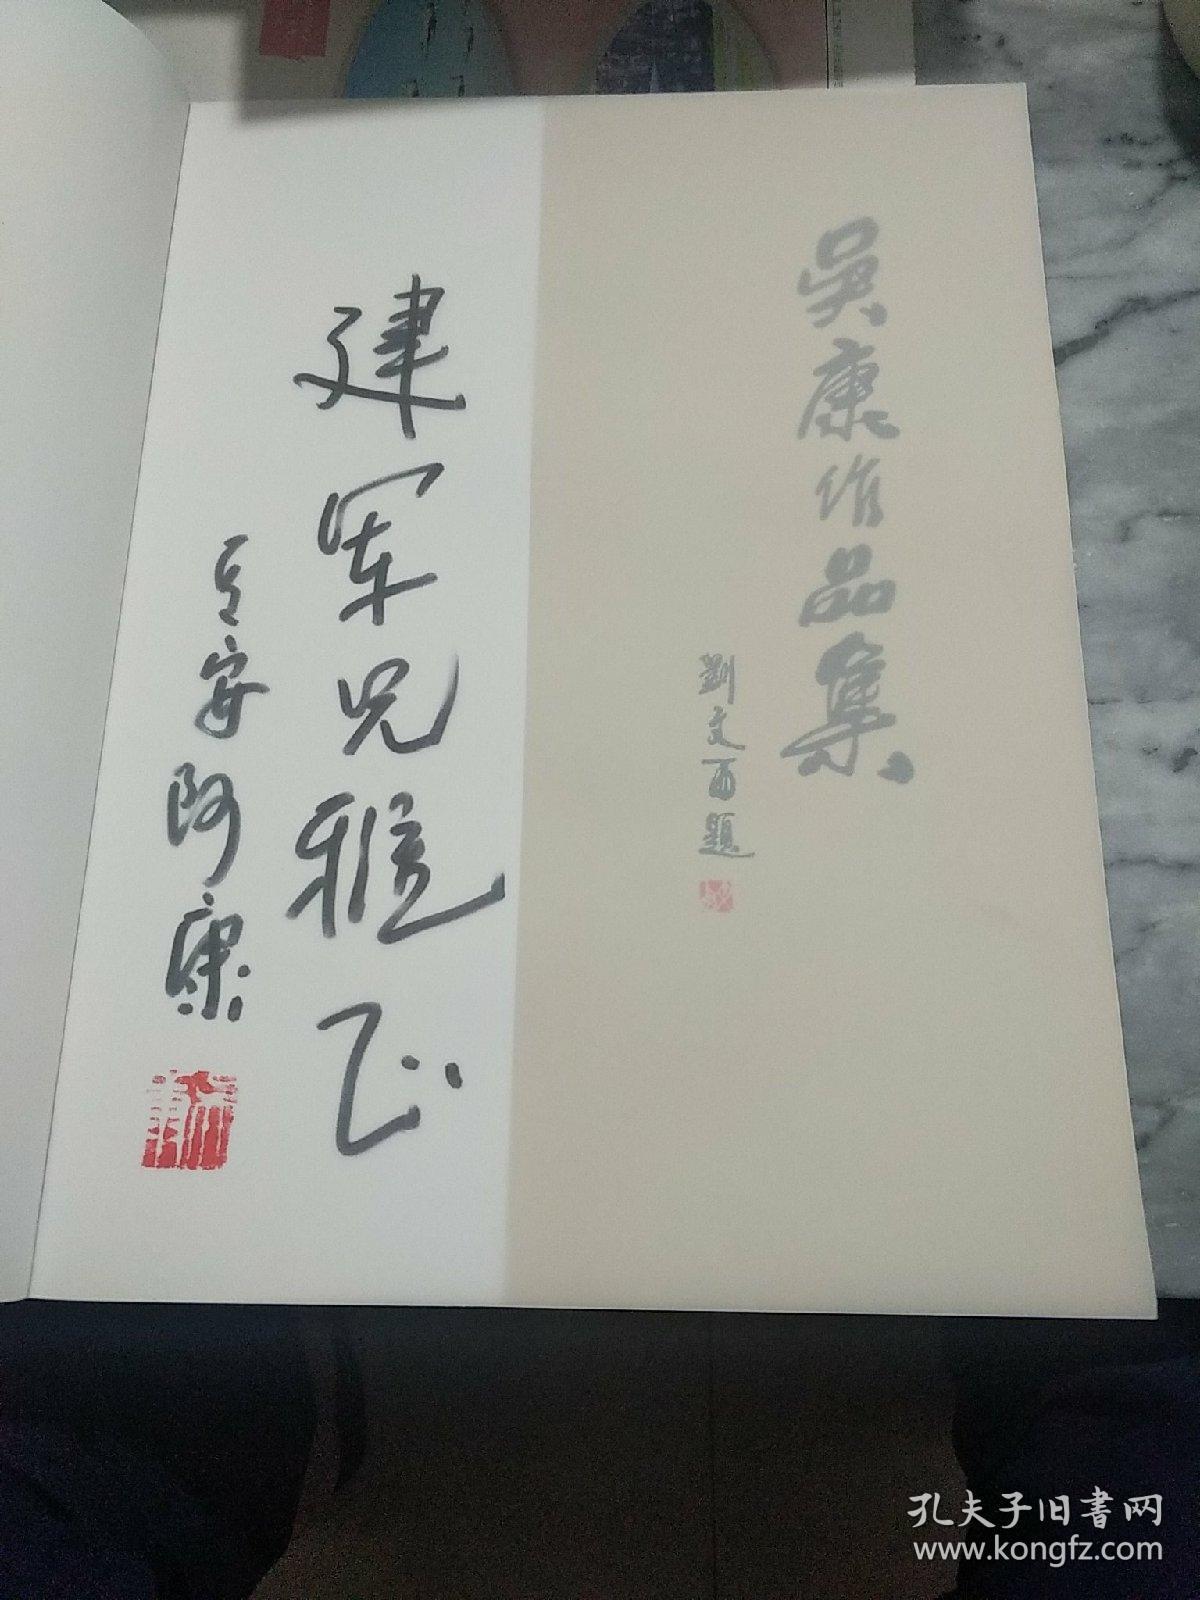 吳康作品集
劉文西題
建军兄雅正
长安阿康
孔夫子旧书网
www.kongfz.com